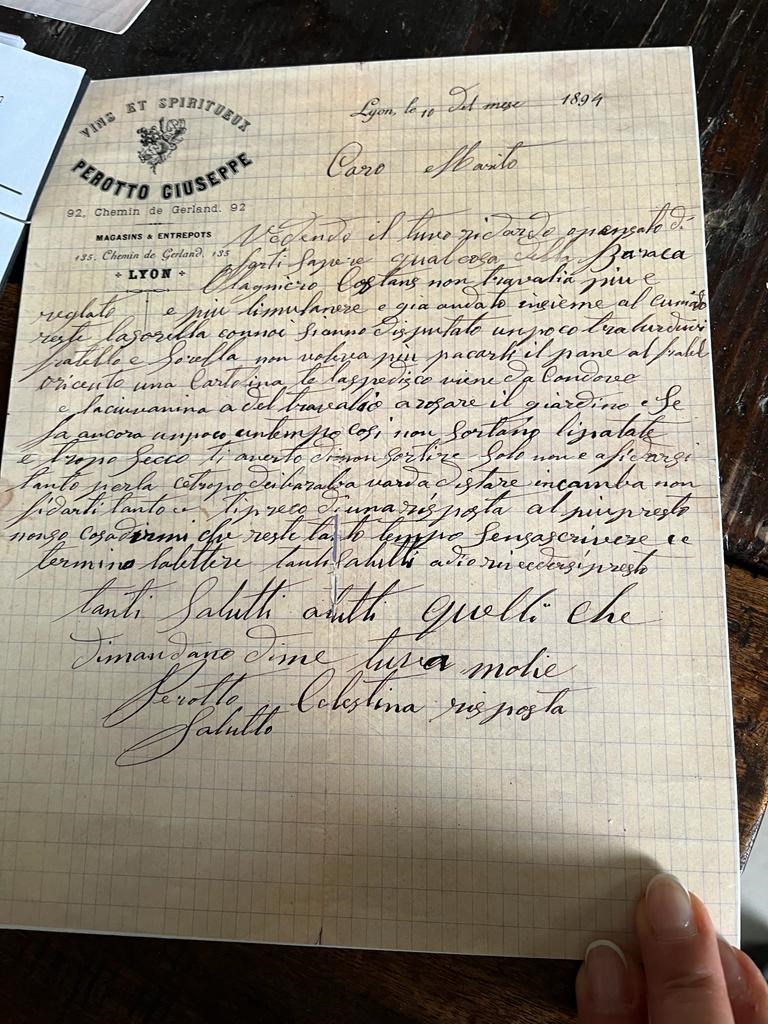 VINS ET SPIRITUEUX
PEROTTO GIUSEPPE
92, Chemin de Gerland, 92
MAGASINS & ENTREPOTS
135, Chemin de Gerland, 135
LYON
Lyon, le 10 del mese 1894
Caro Marito
Vedendo il tuvo ridardo o pensato di
farti sapere qualcosa della Baraca
Costans non travalia piu e
reglato e piu e gia andato insieme al
reste la sorella connoi sianno disputato unpoco tra lurduvi
fratello e Sorella non voleva piu pacarli il pane al fratel
oricevto una Cartolina te laspedisco viene da Condove
e laciuvanina a del travalio a rosare il giardino e Se
fa ancora unpoco untempo cosi non Sortano lipatate
e tropo Secco ti averto di non Sortire Solo non e a fidarsi
tanto perla varda distare incamba non
fidarti tanto e tipreco di una risposta al piupresto
nonso cosa dirmi che reste tanto tempo Sensascrivere e e
termino labettere tanti Salutti adio rivedersi presto
tanti Salutti atutti quelli che
dimandano dime tuva molie
Perotto Celestina risposta
Salutto